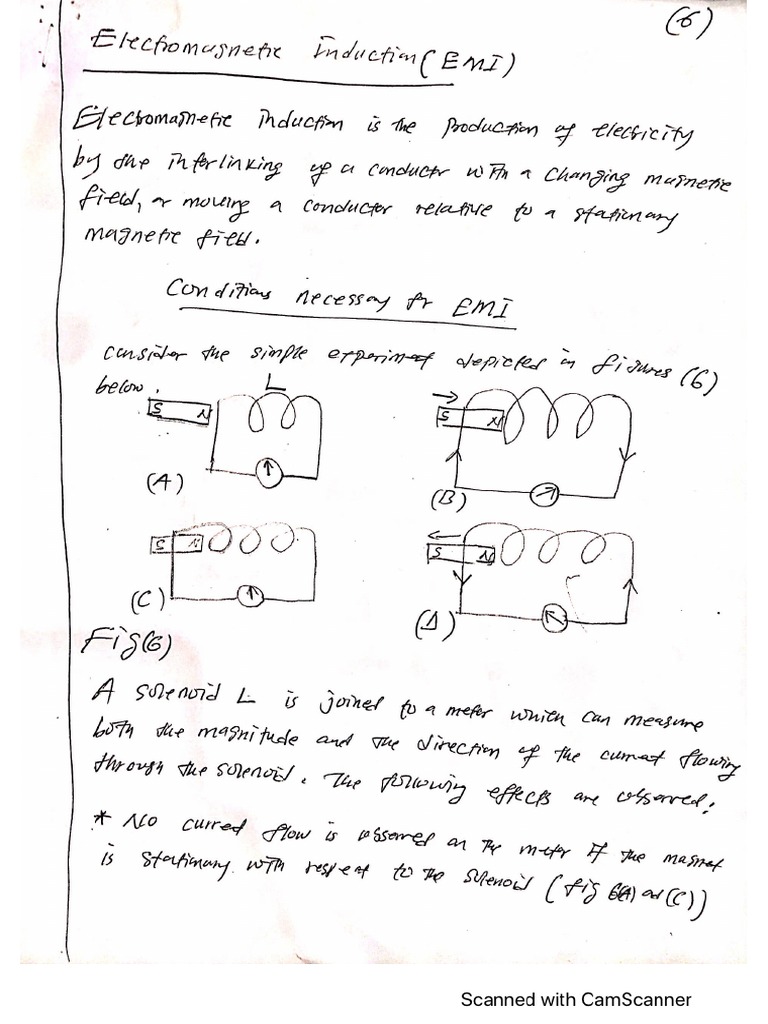 (6)
Electromagnetic Induction (EMI)
Electromagnetic induction is the production of electricity
by the interlinking of a conductor with a changing magnetic
field, or moving a conductor relative to a stationary
magnetic field.
Conditions necessary for EMI
consider the simple experiment depicted in figures (6)
below.
L
S N
S N
(A)
(B)
S N
S N
(C)
(D)
Fig(6)
A solenoid L is joined to a meter which can measure
both the magnitude and the direction of the current flowing
through the solenoid. The following effects are observed:
* No curred flow is observed on the meter if the magnet
is stationary with respect to the solenoid (fig 6(A) and (C))
Scanned with CamScanner